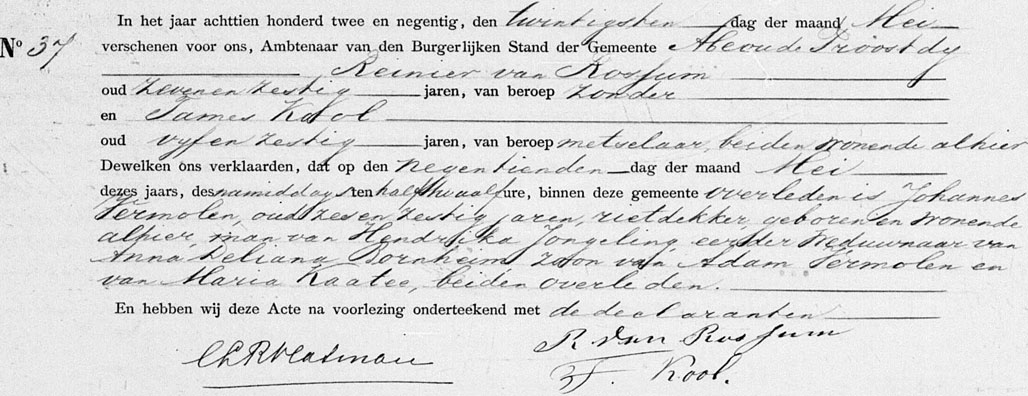 In het jaar achttien honderd twee en negentig, den twintigsten dag der maand Mei
No 37 verschenen voor ons, Ambtenaar van den Burgerlijken Stand der Gemeente Abcoude Proostdy
Reinier van Rossum
oud zeven en zestig jaren, van beroep zonder
en James Kool
oud vyf en zestig jaren, van beroep metselaar, beiden wonende alhier
Dewelken ons verklaarden, dat op den negentienden dag der maand Mei
dezes jaars, des namiddags ten half twaalf ure, binnen deze gemeente overleden is Johannes
Vermolen, oud zes en zestig jaren, rietdekker, geboren en wonende
alhier, man van Hendrika Jongeling, eerder Weduwnaar van
Anna Deliana Bornheim zoon van Adam Vermolen en
van Maria Kaatee, beiden overleden.
En hebben wij deze Acte na voorlezing onderteekend met de declaranten
R van Rossum
Kool.